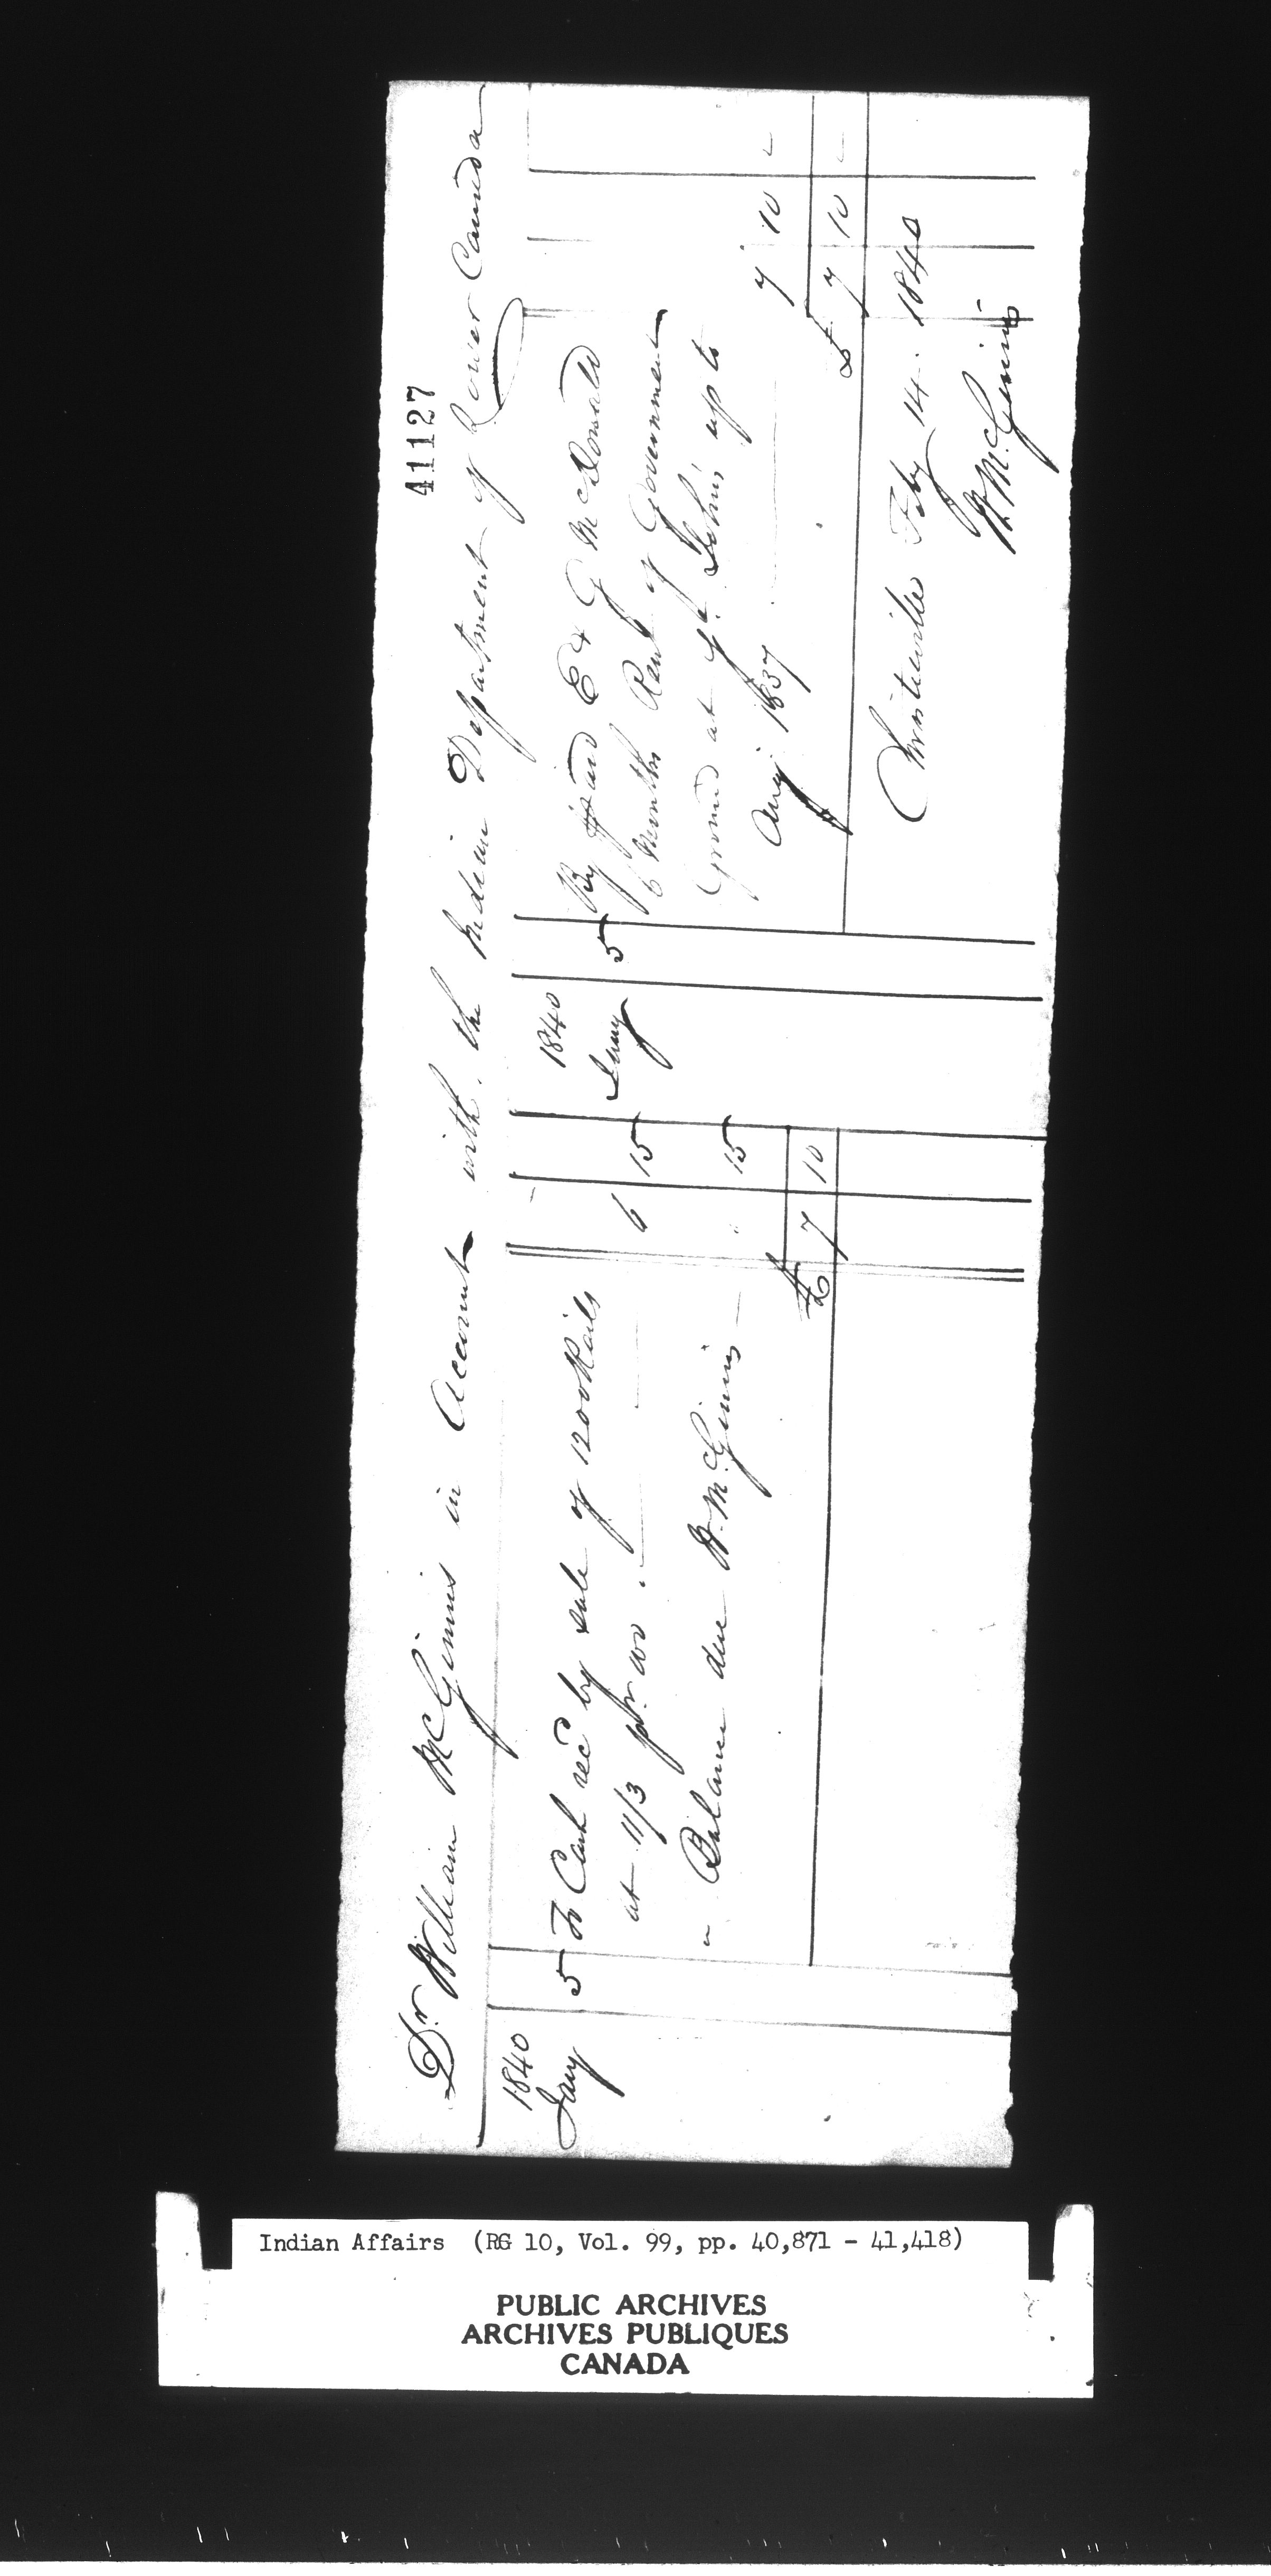 41127
Dr William McGinnis in Account with the Indian Department of Lower Canada
1840
Jany 5 To Cash rec'd by sale of 1200 Rails
at 11/3 pr. 100. 6 15
" Balance due W. McGinnis 15
£ 7 10
1840
Jany 5 By paid E & G McDonald
6 Months Rent of Government
Ground at St. Johns up to
Augt 1837 7 10
£ 7 10
Christieville Feby 14. 1840
W. McGinnis
Indian Affairs (RG 10, Vol. 99, pp. 40,871 - 41,418)
PUBLIC ARCHIVES
ARCHIVES PUBLIQUES
CANADA